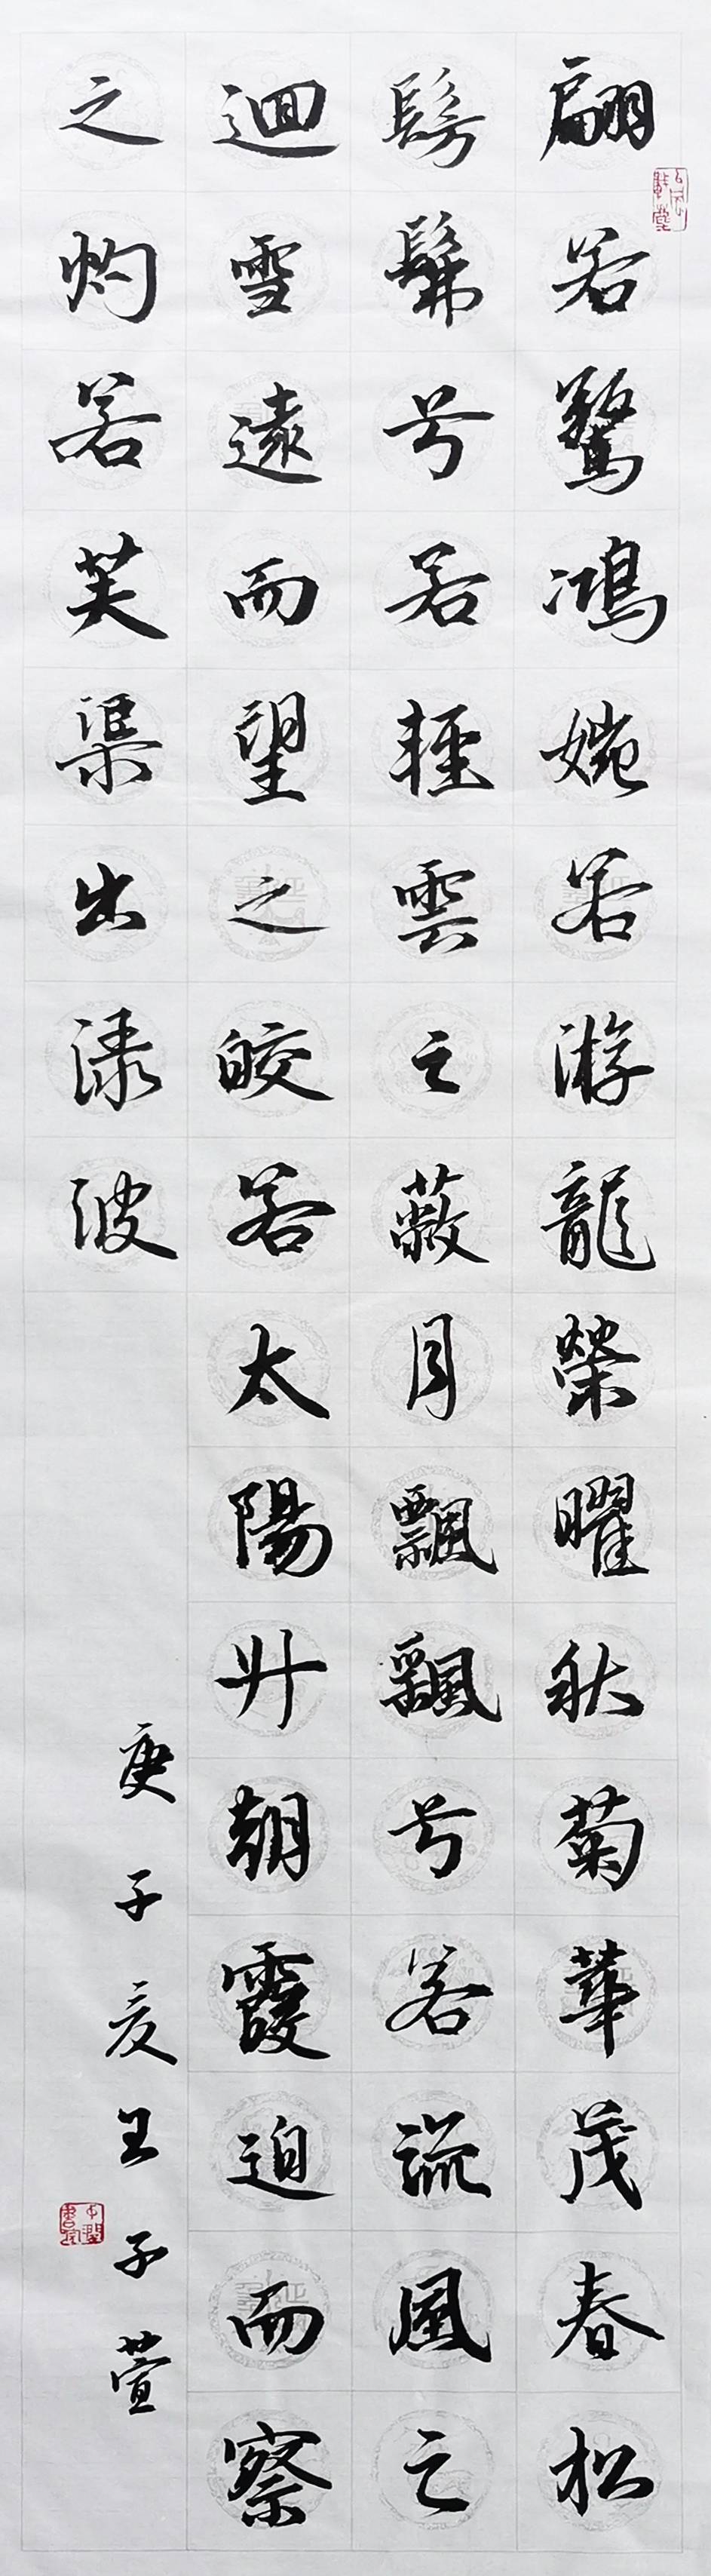 翩若驚鴻婉若游龍榮曜秋菊華茂春松
髣髴兮若輕雲之蔽月飄颻兮若流風之
迴雪遠而望之皎若太陽升朝霞迫而察
之灼若芙渠出淥波
庚子夏王子萱